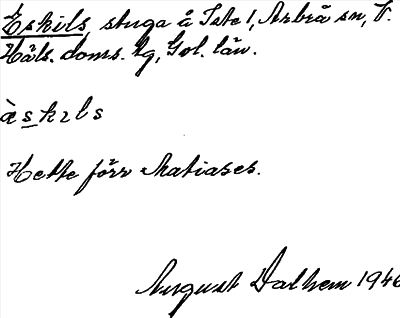 Eskils, stuga å Tate 1, Arbrå sn, V.
Häls. doms. lg, Gvl. län.
àskils
Hette förr Matiases.
August Dalhem 1946